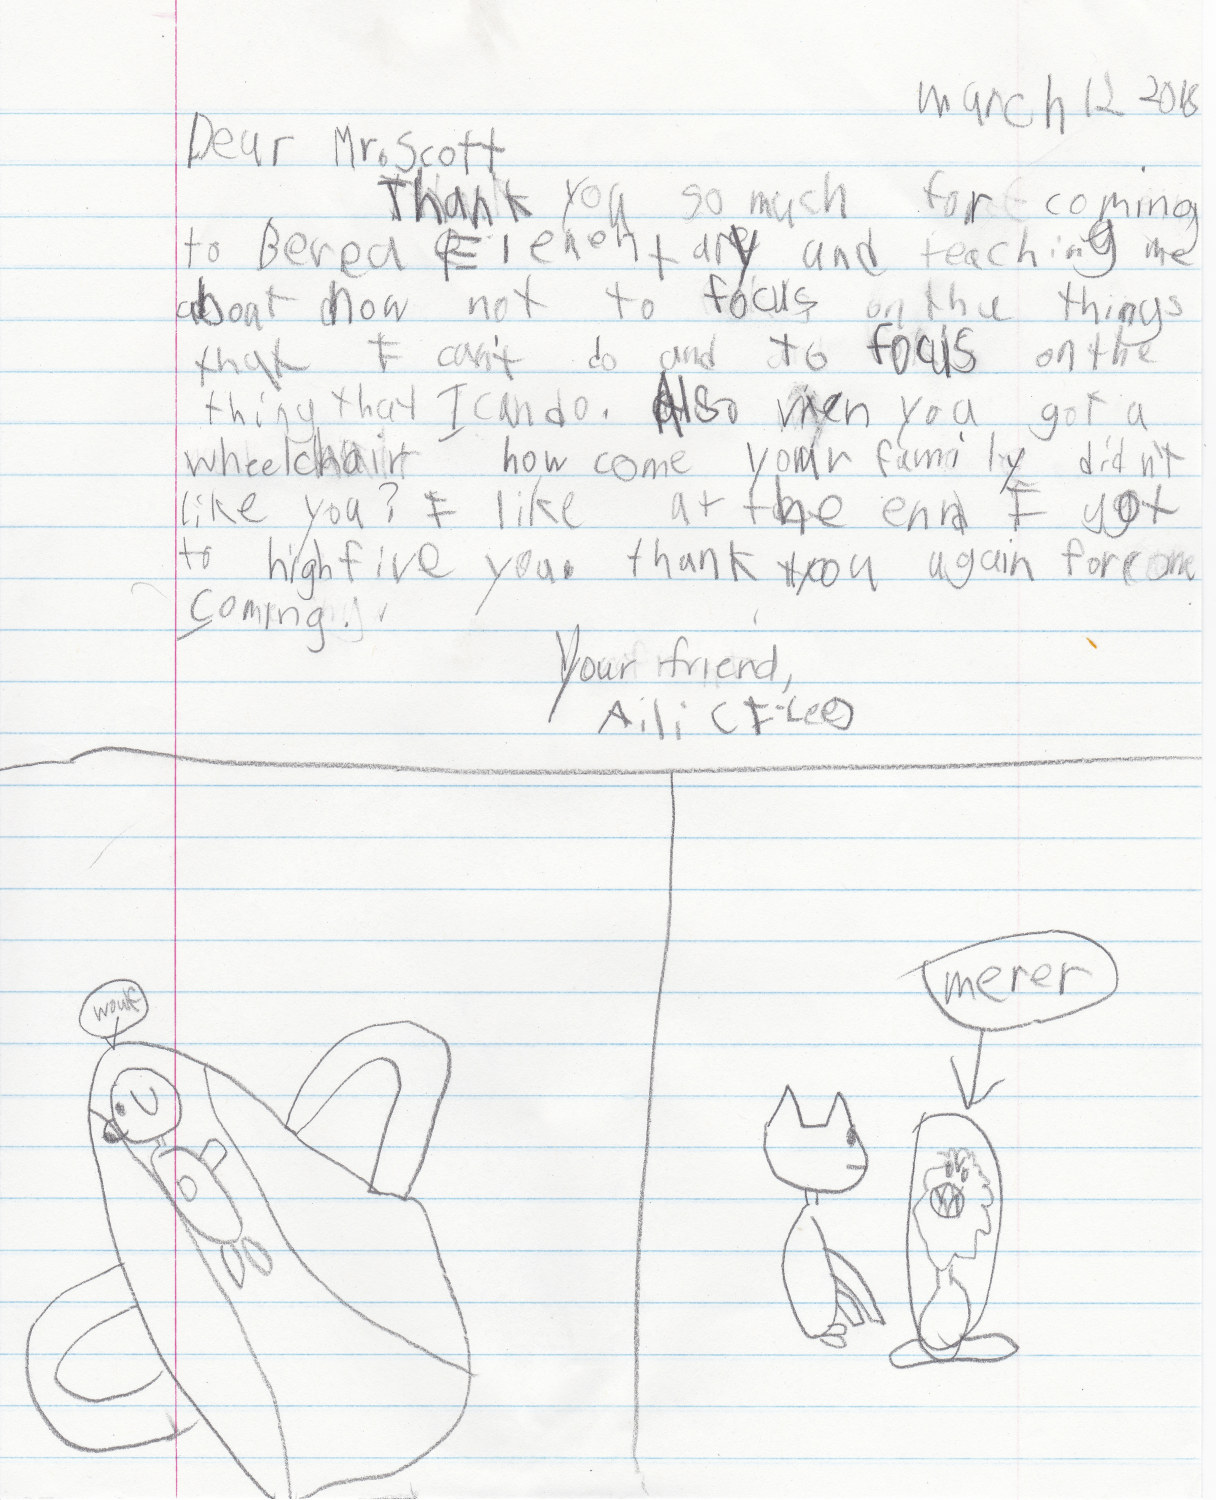 march 12 2018
Dear Mr. Scott
Thank you so much for coming
to Berea Elementary and teaching me
about how not to focus on the things
that I can't do and to focus on the
thing that I can do. Also when you got a
wheelchair how come your family didn't
like you? I like at the end I got
to highfive you. thank you again for
coming.
Your friend,
Aili (I-Lee)
merer